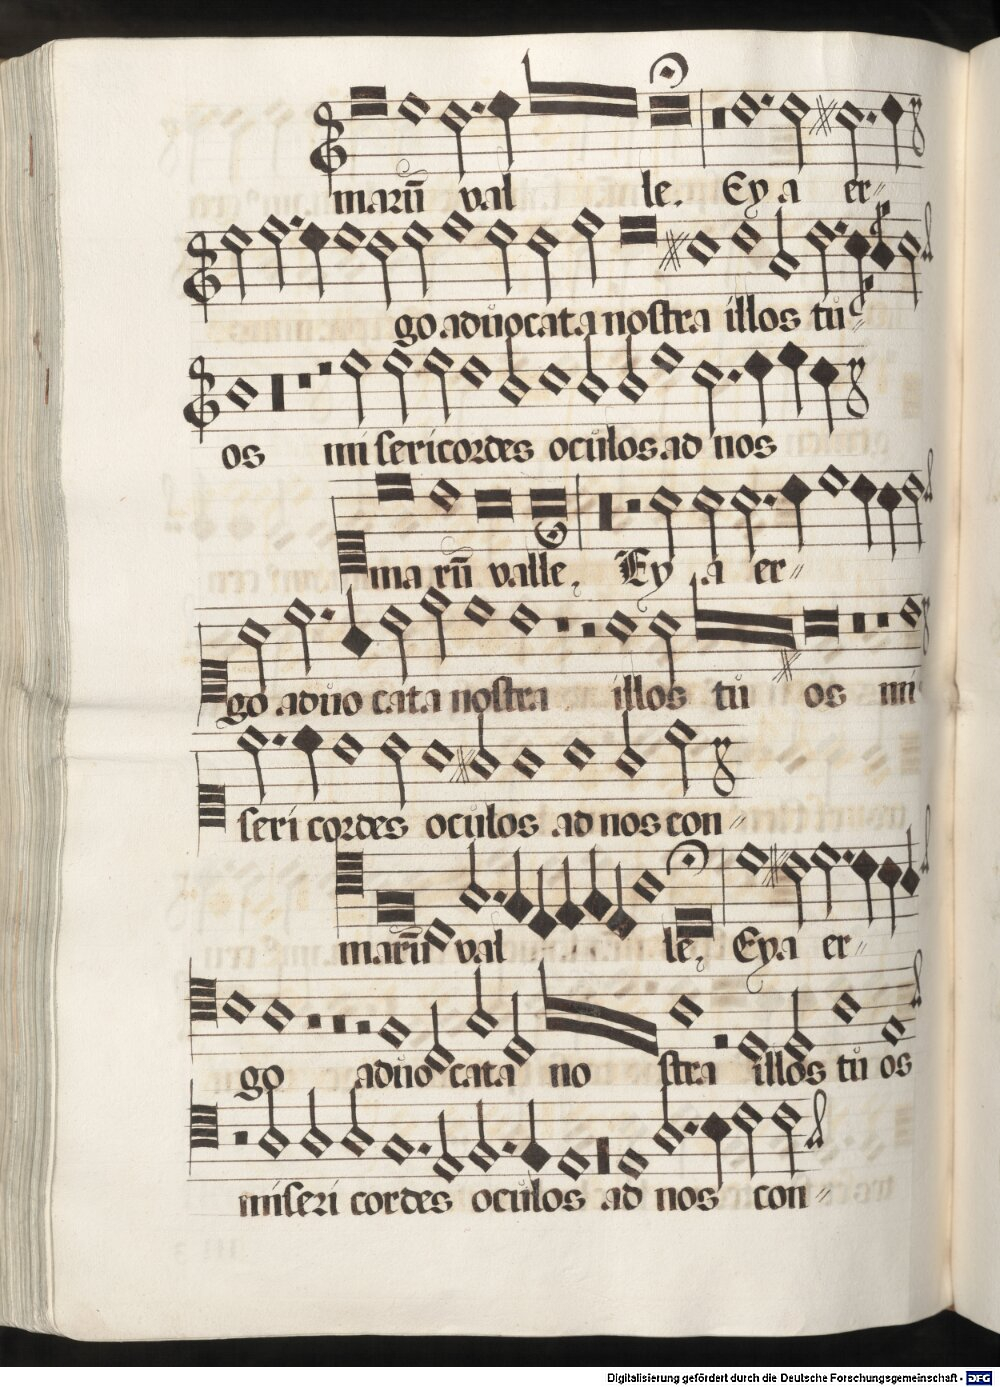 marū val le. Ey a er〃
go aduocata nostra illos tu
os mi sericordes oculos ad nos
ma rū valle. Ey a er〃
go aduo cata nostra illos tu os mi
seri cordes oculos ad nos con〃
marū val le. Eya er〃
go aduo cata no stra illos tu os
miseri cordes oculos ad nos con〃
Digitalisierung gefördert durch die Deutsche Forschungsgemeinschaft - DFG